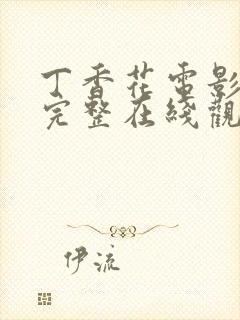 丁香花電影
完整在綫觀
伊流